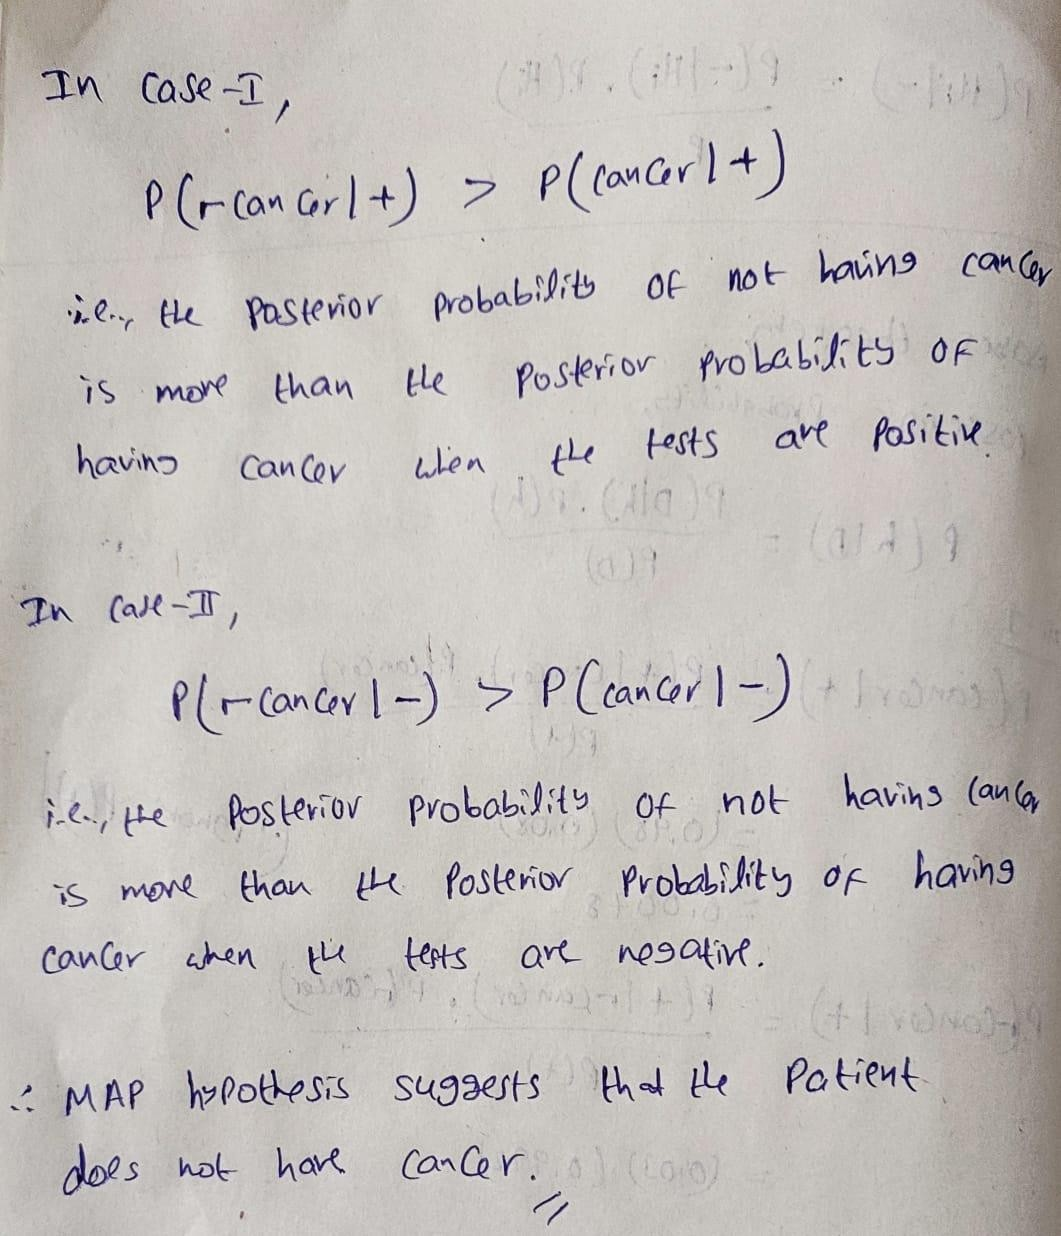 In Case-I,
P(¬cancer|+) > P(cancer|+)
i.e., the posterior probability of not having cancer
is more than the posterior probability of
having cancer when the tests are positive.
In Case-II,
P(¬cancer|-) > P(cancer|-)
i.e., the posterior probability of not having cancer
is more than the posterior probability of having
cancer when the tests are negative.
∴ MAP hypothesis suggests that the patient
does not have cancer.